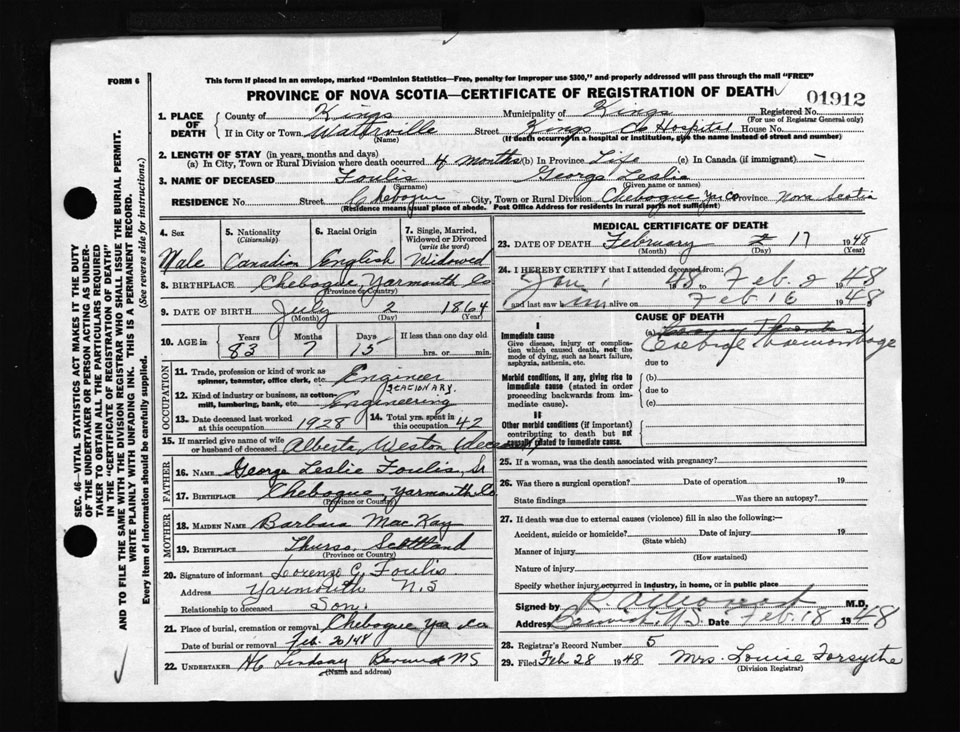 FORM 6
This form if placed in an envelope, marked "Dominion Statistics—Free, penalty for improper use $300," and properly addressed will pass through the mail "FREE"
PROVINCE OF NOVA SCOTIA—CERTIFICATE OF REGISTRATION OF DEATH
01912
1. PLACE OF DEATH
County of Kings Municipality of Kings Registered No.
(For use of Registrar General only)
If in City or Town Waterville Street Kings Co Hospital House No.
(Name) (If death occurred in a hospital or institution, give the name instead of street and number)
2. LENGTH OF STAY (in years, months and days)
(a) In City, Town or Rural Division where death occurred 4 months (b) In Province Life (c) In Canada (if immigrant) —
3. NAME OF DECEASED Foulis George Leslie
(Surname) (Given name or names)
RESIDENCE No. Street Chebogue City, Town or Rural Division Chebogue Yar Co Province Nova Scotia
(Residence means usual place of abode. Post Office Address for residents in rural parts not sufficient)
4. Sex
Male
5. Nationality
(Citizenship)
Canadian
6. Racial Origin
English
7. Single, Married, Widowed or Divorced
(write the word)
Widowed
8. BIRTHPLACE Chebogue, Yarmouth Co
(Province or Country)
9. DATE OF BIRTH July 2 1864
(Month) (Day) (Year)
10. AGE in Years Months Days If less than one day old
83 7 15 hrs. or min.
OCCUPATION
11. Trade, profession or kind of work as spinner, teamster, office clerk, etc. Engineer
STATIONARY.
12. Kind of industry or business, as cotton-mill, lumbering, bank, etc. Engineering
13. Date deceased last worked at this occupation 1928
14. Total yrs. spent in this occupation 42
15. If married give name of wife or husband of deceased Alberta Weston (deceased)
FATHER
16. NAME George Leslie Foulis, Sr
17. BIRTHPLACE Chebogue, Yarmouth Co
(Province or Country)
MOTHER
18. MAIDEN NAME Barbara MacKay
19. BIRTHPLACE Thurso, Scottland
(Province or Country)
20. Signature of informant Lorenzo C. Foulis
Address Yarmouth N.S
Relationship to deceased Son.
21. Place of burial, cremation or removal Chebogue Yar Co
Date of burial or removal Feb. 20/48
22. UNDERTAKER H C Lindsay Berwick NS
(Name and address)
MEDICAL CERTIFICATE OF DEATH
23. DATE OF DEATH February 2 17 1948
(Month) (Day)
24. I HEREBY CERTIFY that I attended deceased from:
Jan 1 1948 to Feb. 2 1948
and last saw him alive on Feb 16 1948
CAUSE OF DEATH
I
Immediate cause
Give disease, injury or complication which caused death, not the mode of dying, such as heart failure, asphyxia, asthenia, etc.
(a) Coronary Thrombosis
Cerebral Haemorrhage
due to
Morbid conditions, if any, giving rise to immediate cause (stated in order proceeding backwards from immediate cause).
(b)
due to
(c)
II
Other morbid conditions (if important) contributing to death but not causally related to immediate cause.
25. If a woman, was the death associated with pregnancy?
26. Was there a surgical operation? Date of operation 19
State findings Was there an autopsy?
27. If death was due to external causes (violence) fill in also the following:—
Accident, suicide or homicide? Date of injury 19
(State which)
Manner of injury
(How sustained)
Nature of injury
Specify whether injury occurred in industry, in home, or in public place
Signed by M.D.
Address Berwick, N.S. Date Feb. 18 1948
28. Registrar's Record Number 5
29. Filed Feb 28 1948 Mrs. Louise Forsythe
(Division Registrar)
SEC. 46—VITAL STATISTICS ACT MAKES IT THE DUTY
OF THE UNDERTAKER OR PERSON ACTING AS UNDER-
TAKER TO OBTAIN ALL THE PARTICULARS REQUIRED
IN THE "CERTIFICATE OF REGISTRATION OF DEATH"
AND TO FILE THE SAME WITH THE DIVISION REGISTRAR WHO SHALL ISSUE THE BURIAL PERMIT.
WRITE PLAINLY WITH UNFADING INK. THIS IS A PERMANENT RECORD.
Every item of information should be carefully supplied. (See reverse side for instructions.)